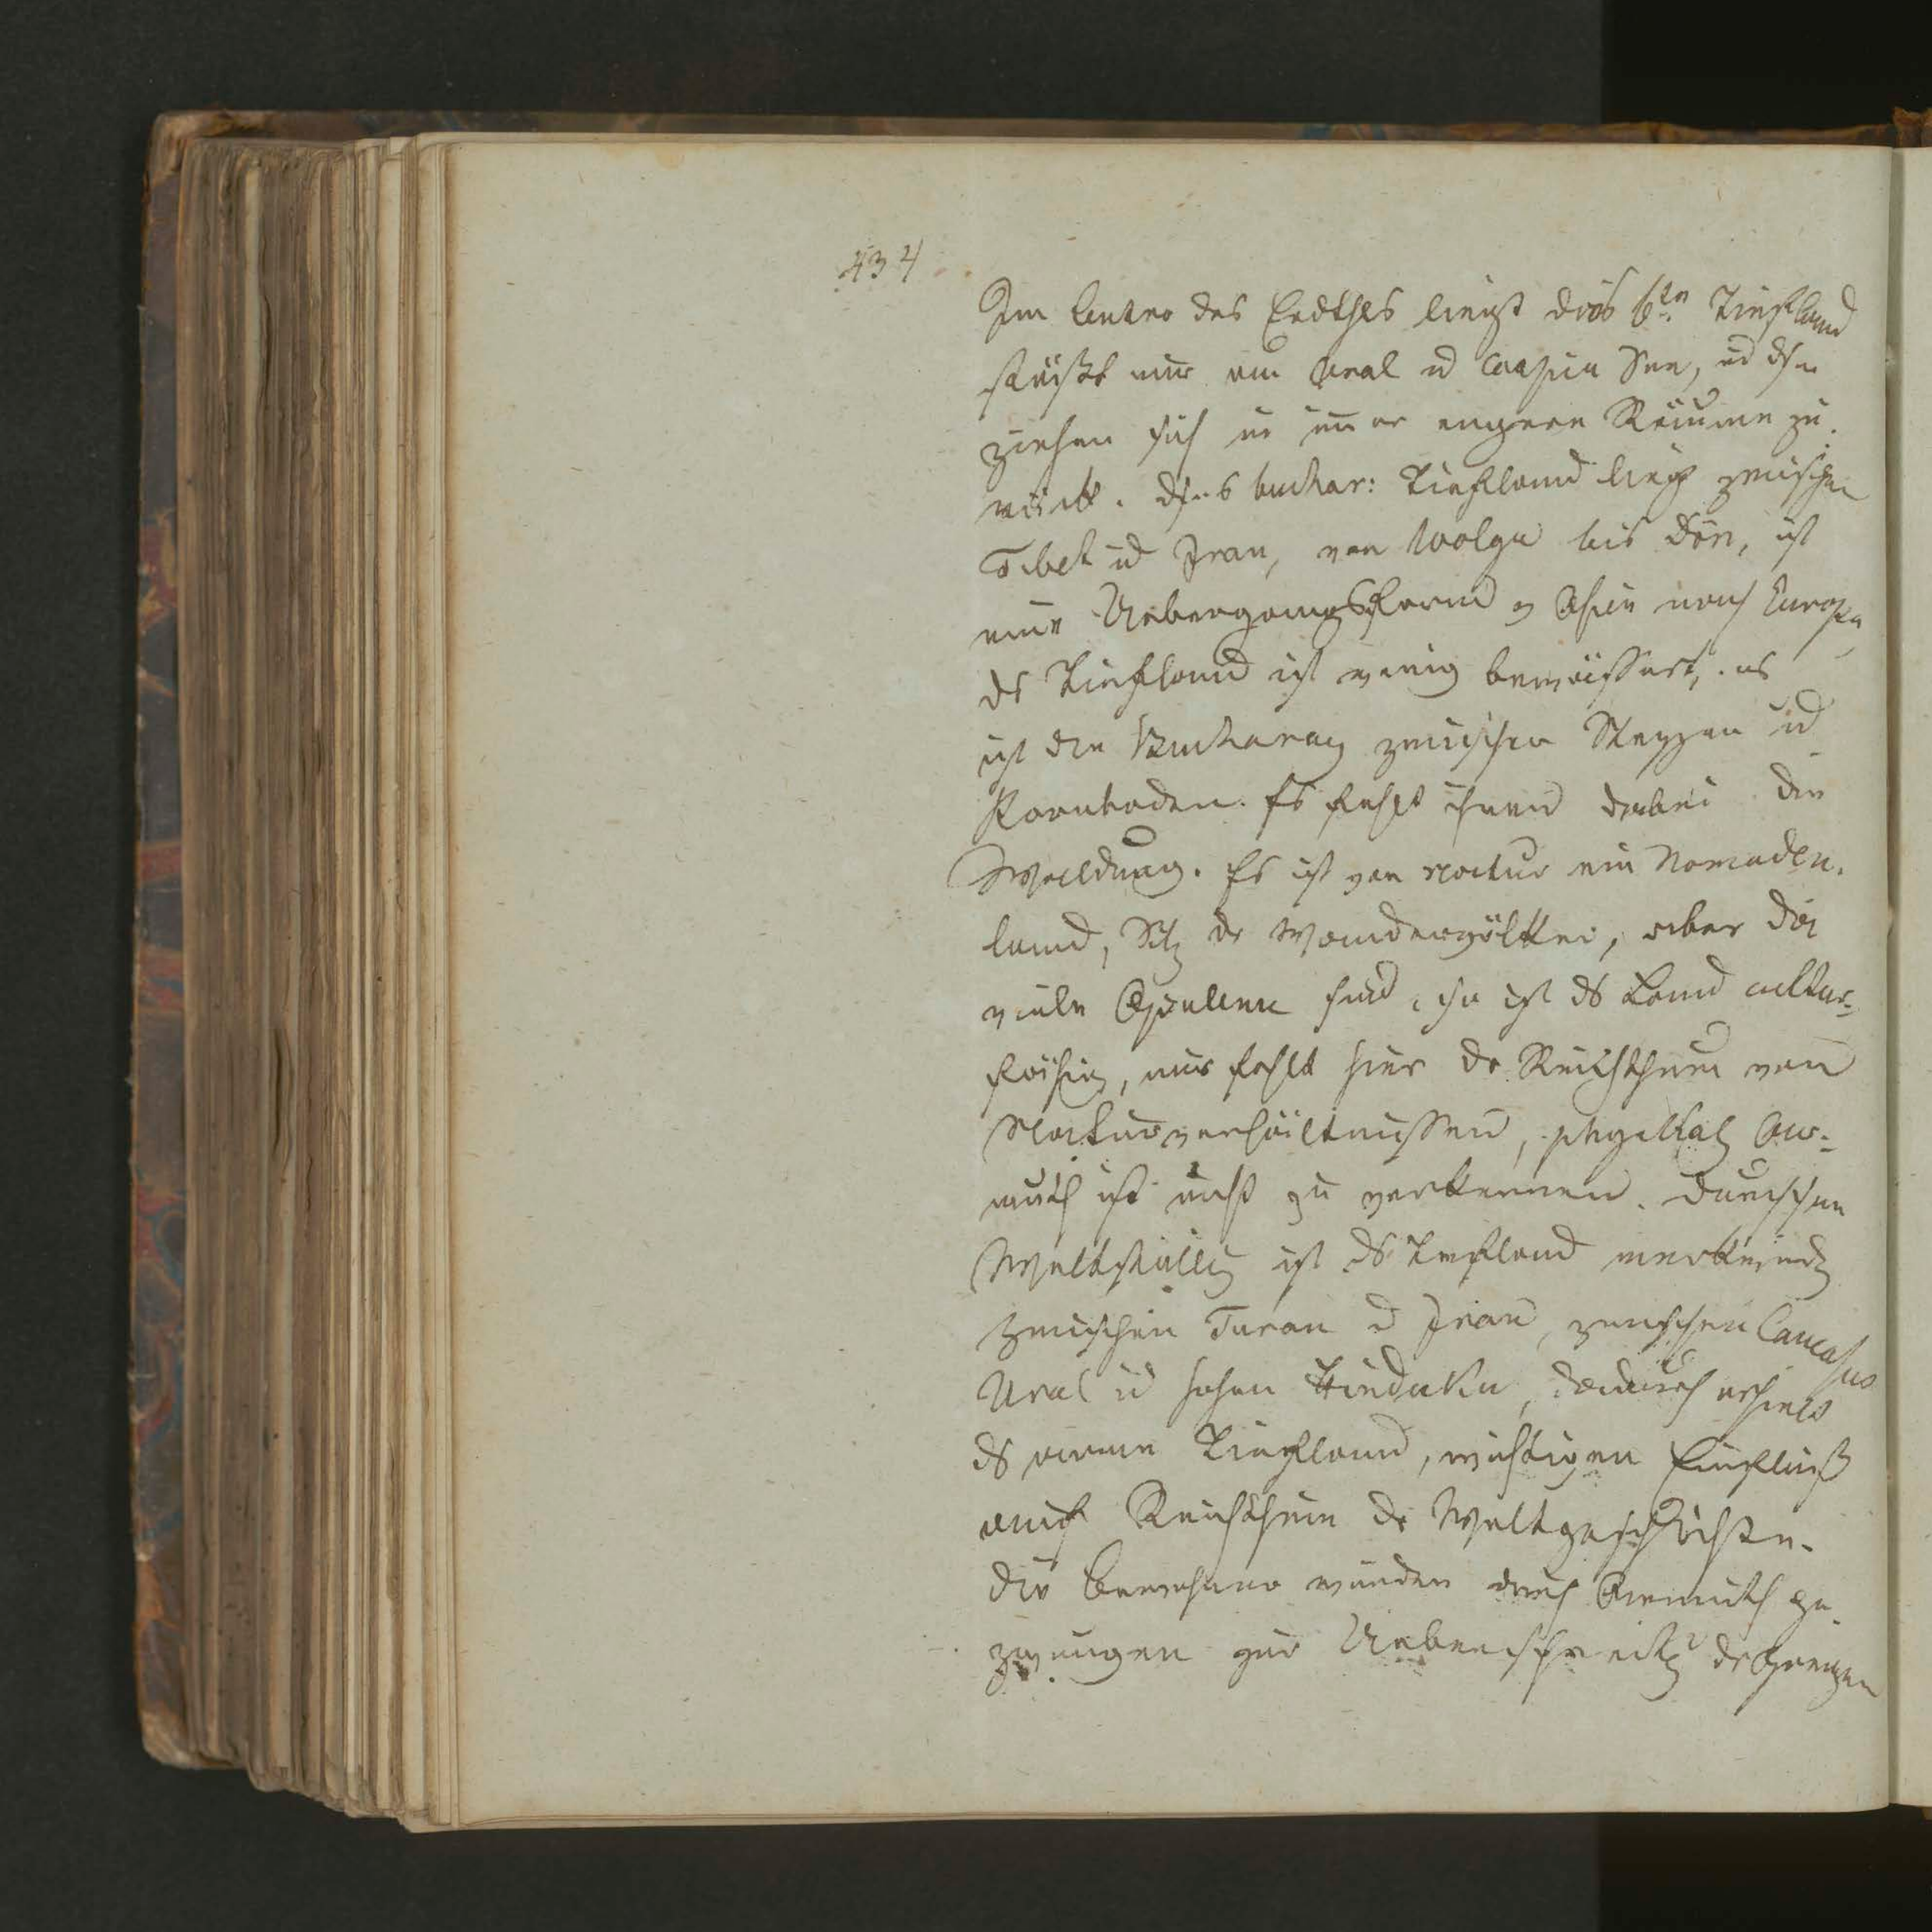 434
Im Centro des Erdthls liegt dies 6tn Tiefland
stößt nur am Aral u Caspin See, ud
ziehen sich in im̄er engere Räume zu-
rück. buchar: Tiefland liegt zwischen
Tibet ud Iran, von Wolga bis Don, ist
eine Uebergangsform Asien nach Europa,
ds Tiefland ist wenig bewässert, es
ist die Bucharey zwischen Steppen ud
Kornboden. Es fehlt ihnen dabei die
Waldung. Es ist von Natur ein Nomaden-
land, Sitz dr Wandervölker, aber die
viele sind, ist ds Land cultur-
fähig, nur fehlt hier dr Reichthum von
Naturverhältnissen, physikal Ar-
muth ist nicht zu verkennen. Durch seine
Weltstellg ist ds Tiefland merkwürdg
zwischen Turan u Iran, zwischen Caucasus
Ural ud hohen Hinduku, dadurch erhielt
ds arme Tiefland, wichtigen Einfluß
auf Reichthum dr Weltgeschichte.
Die Bewohner wurden durch Armuth ge-
zwungen zur Ueberschreitg dr Grenzen